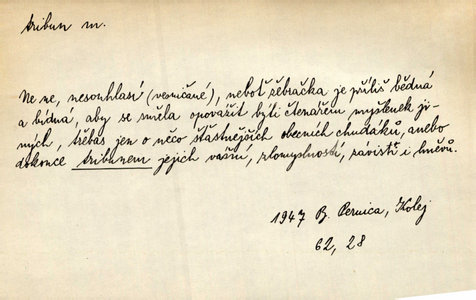 tribun m.
Ne ne, nesouhlasí (vesničané), neboť žebračka je příliš bědná
a bídná, aby se směla opovážit býti čtenářem myšlenek ji-
ných, třebas jen o něco šťastnějších obecních chudáků, anebo
dokonce tribunem jejich vášní, zlomyslností, závistí i hněvů.
1947 B. Pernica, Kolej
62, 28